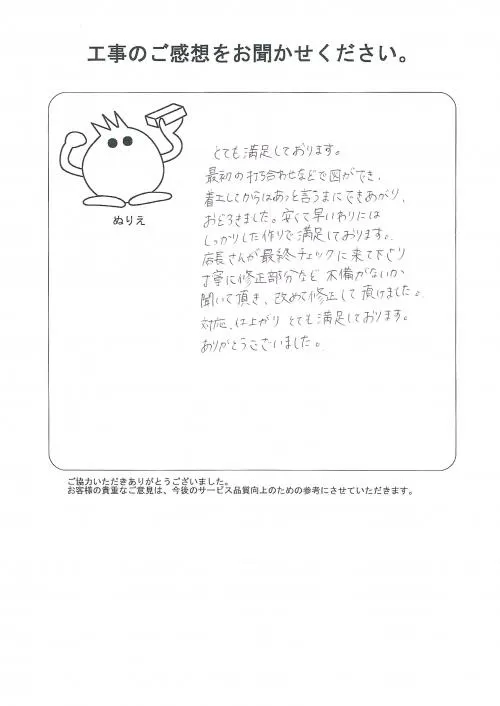 工事のご感想をお聞かせください。
ぬりえ
とても満足しております。
最初の打ち合わせなどで図ができ、
着工してからはあっと言うまにできあがり、
おどろきました。安くて早いわりには
しっかりした作りで満足しております。
店長さんが最終チェックに来て下さり
丁寧に修正部分など不備がないか
聞いて頂き、改めて修正して頂けました。
対応、仕上がりとても満足しております。
ありがとうございました。
ご協力いただきありがとうございました。
お客様の貴重なご意見は、今後のサービス品質向上のための参考にさせていただきます。